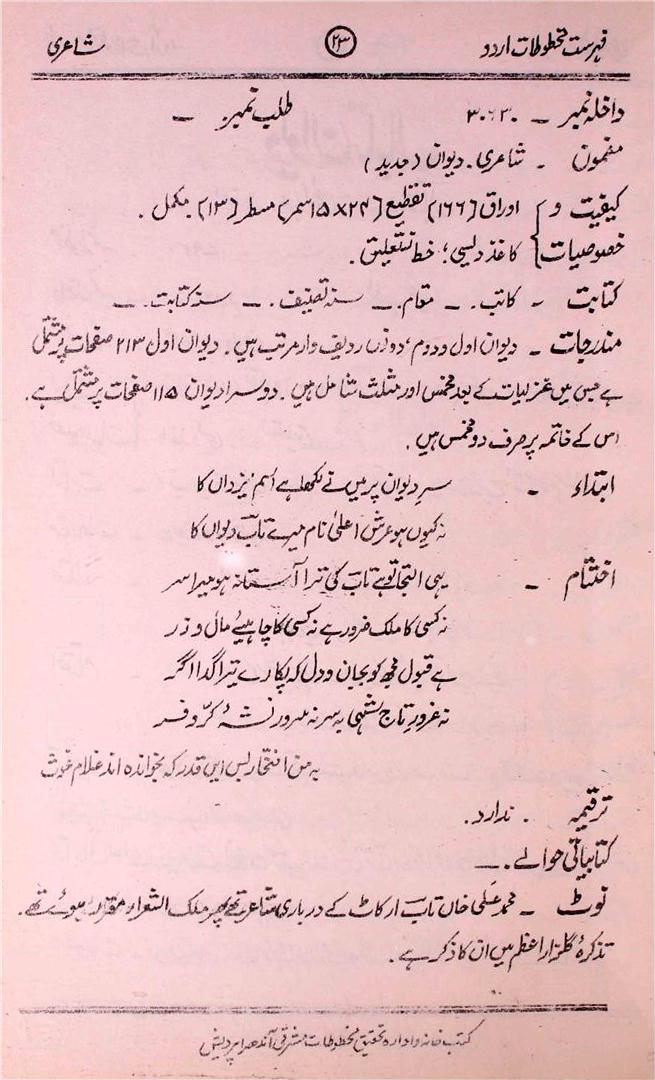 فہرست مخطوطات اردو ۲۳ شاعری
داخلہ نمبر ـ ۳۰۶۳۰ طلب نمبر ـ
مضمون ـ شاعری۔ دیوان (جدید)
کیفیت و } اوراق (۱۶۶) تقطیع (۲۴×۱۵سمر) مسطر (۱۳) مکمل۔
خصوصیات } کاغذ دلیسی؛ خط نستعلیق۔
کتابت ـ کاتب ـ ـ مقام ـ ـ سنہ تصنیف ـ ـ سنہ کتابت ـ ـ
مندرجات ـ دیوان اول و دوم، دونوں ردیف وار مرتب ہیں۔ دیوان اول ۲۱۳ صفحات پر مشتمل
ہے جس میں غزلیات کے بعد مخمس اور مثلث شامل ہیں۔ دوسرا دیوان ۱۱۵ صفحات پر مشتمل ہے۔
اس کے خاتمہ پر صرف دو مخمس ہیں۔
ابتداء ـ سرِ دیوان پر میں نے لکھا ہے اسم یزداں کا
نہ کیوں ہو عرش اعلیٰ نام میرے تاب دیواں کا
اختتام ـ یہی التجا تو ہے تاب کی ترا آستانہ ہو میرا سر
نہ کسی کا ملک ضرور ہے نہ کسی کا چاہیے مال و زر
ہے قبول مجھ کو بجان و دل کہ پکارے تیرا گدا اگر
نہ غرورِ تاج شہی بہ سر نہ سرور نشۂ کرّ و فر
بہ من افتخار بس ایں قدر کہ بخواندہ اند غلام غوث
ترقیمہ ۔ ندارد۔
کتابیاتی حوالے ـ ـ
نوٹ ـ محمد علی خاں تاب ارکاٹ کے درباری شاعر تھے پھر ملک الشعراء مقرر ہوئے تھے۔
تذکرۂ گلزار اعظم میں ان کا ذکر ہے۔
کتب خانہ و ادارہ تحقیق مخطوطات مشرقی آندھرا پردیش